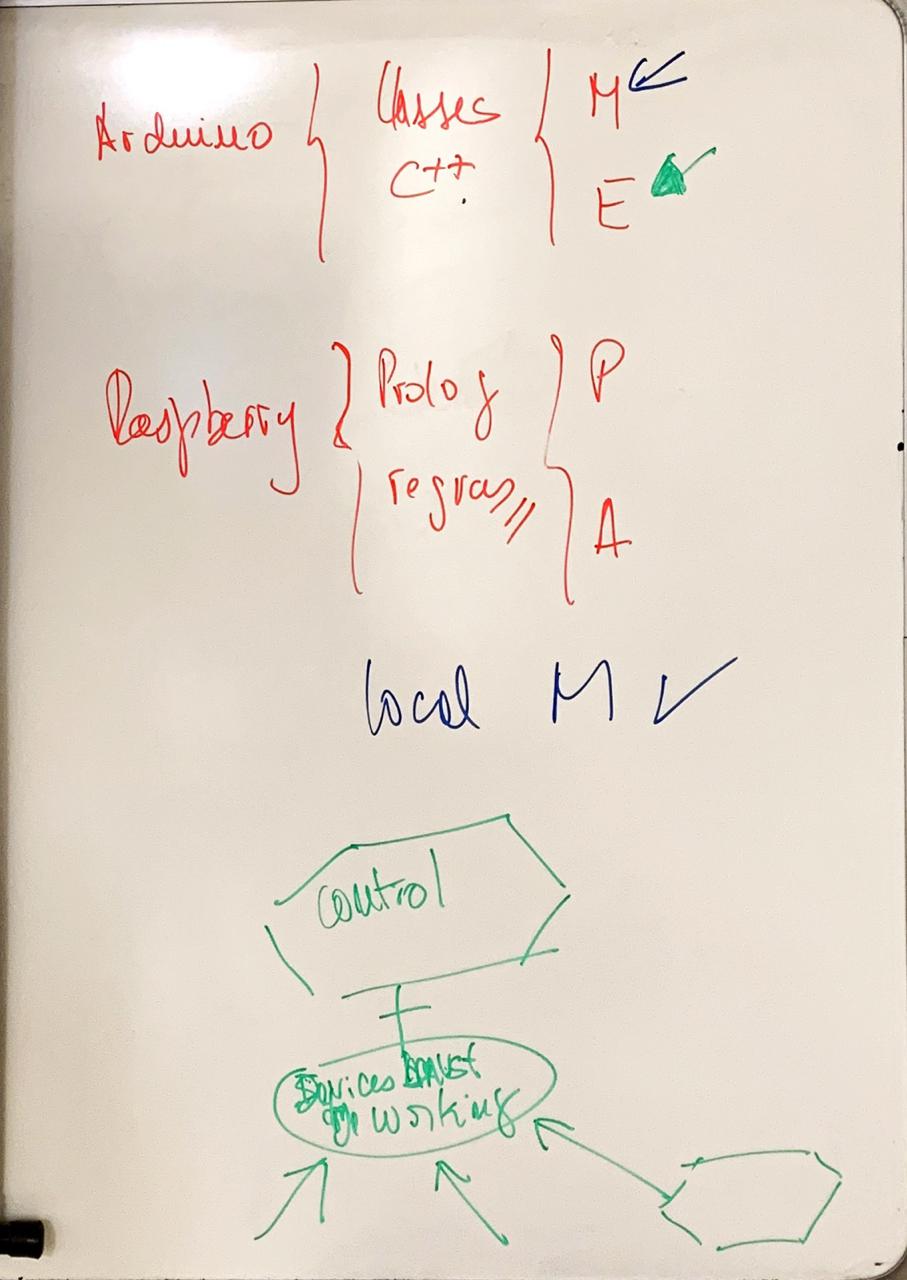 Arduino
Classes
C++
M
E
Raspberry
Prolog
regras
P
A
local M
control
Devices must
working